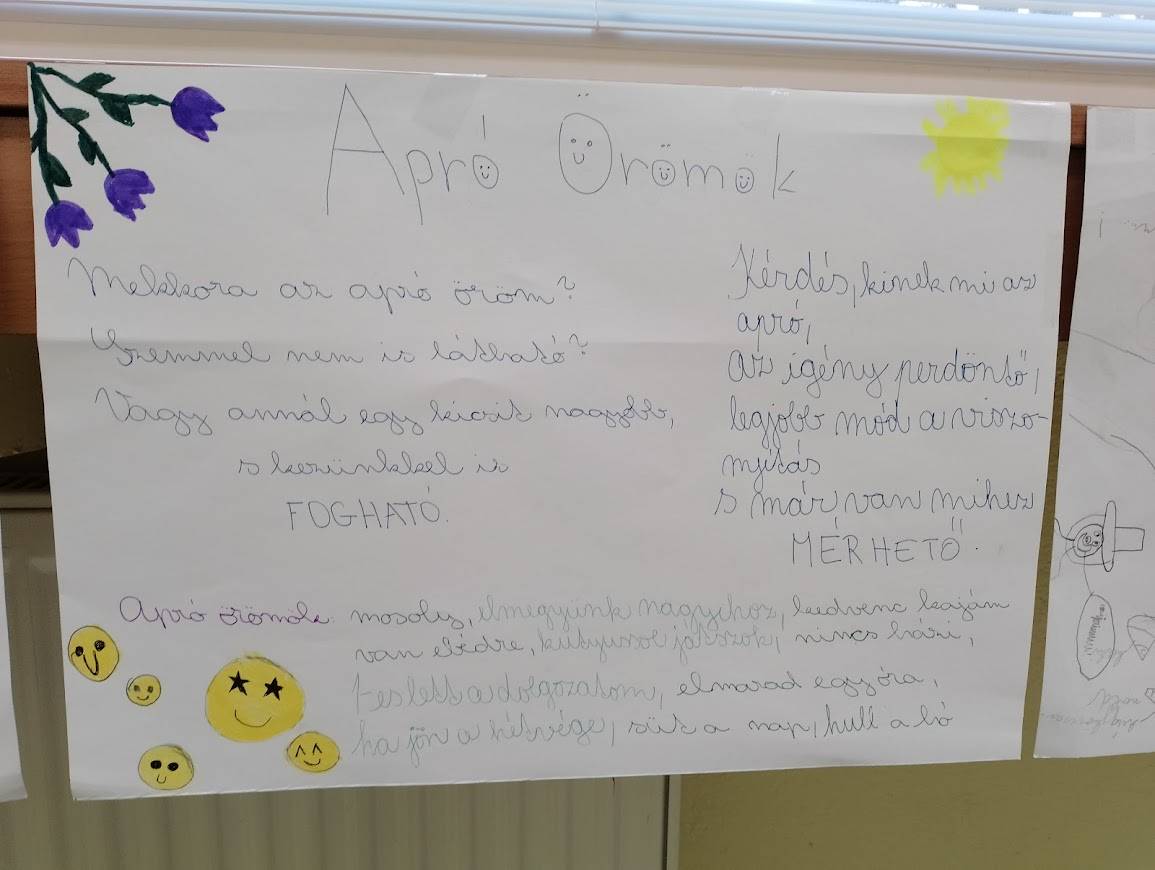 Apró Örömök
Mekkora az apró öröm?
Szemmel nem is látható?
Vagy annál egy kicsit nagyobb,
s kezünkkel is
FOGHATÓ.
Kérdés, kinek mi az
apró,
az igény perdöntő,
legjobb mód a viszo-
nyítás
s már van mihez
MÉRHETŐ.
Apró örömök: mosoly, elmegyünk nagyihoz, kedvenc kajám
van ebédre, kutyussal játszok, nincs házi,
5-es lett a dolgozatom, elmarad egy óra,
ha jön a hétvége, süt a nap, hull a hó